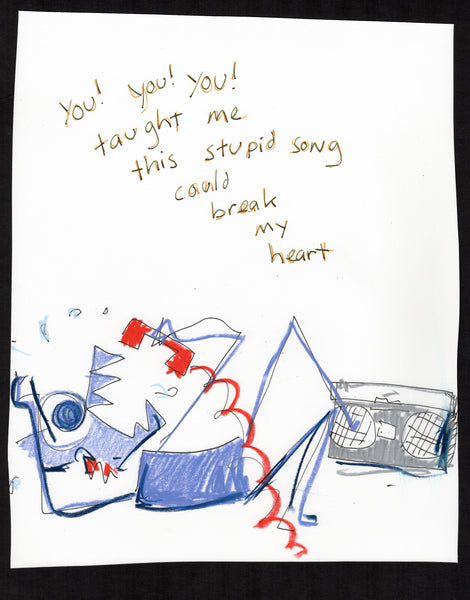 you! you! you!
taught me
this stupid song
could
break
my
heart